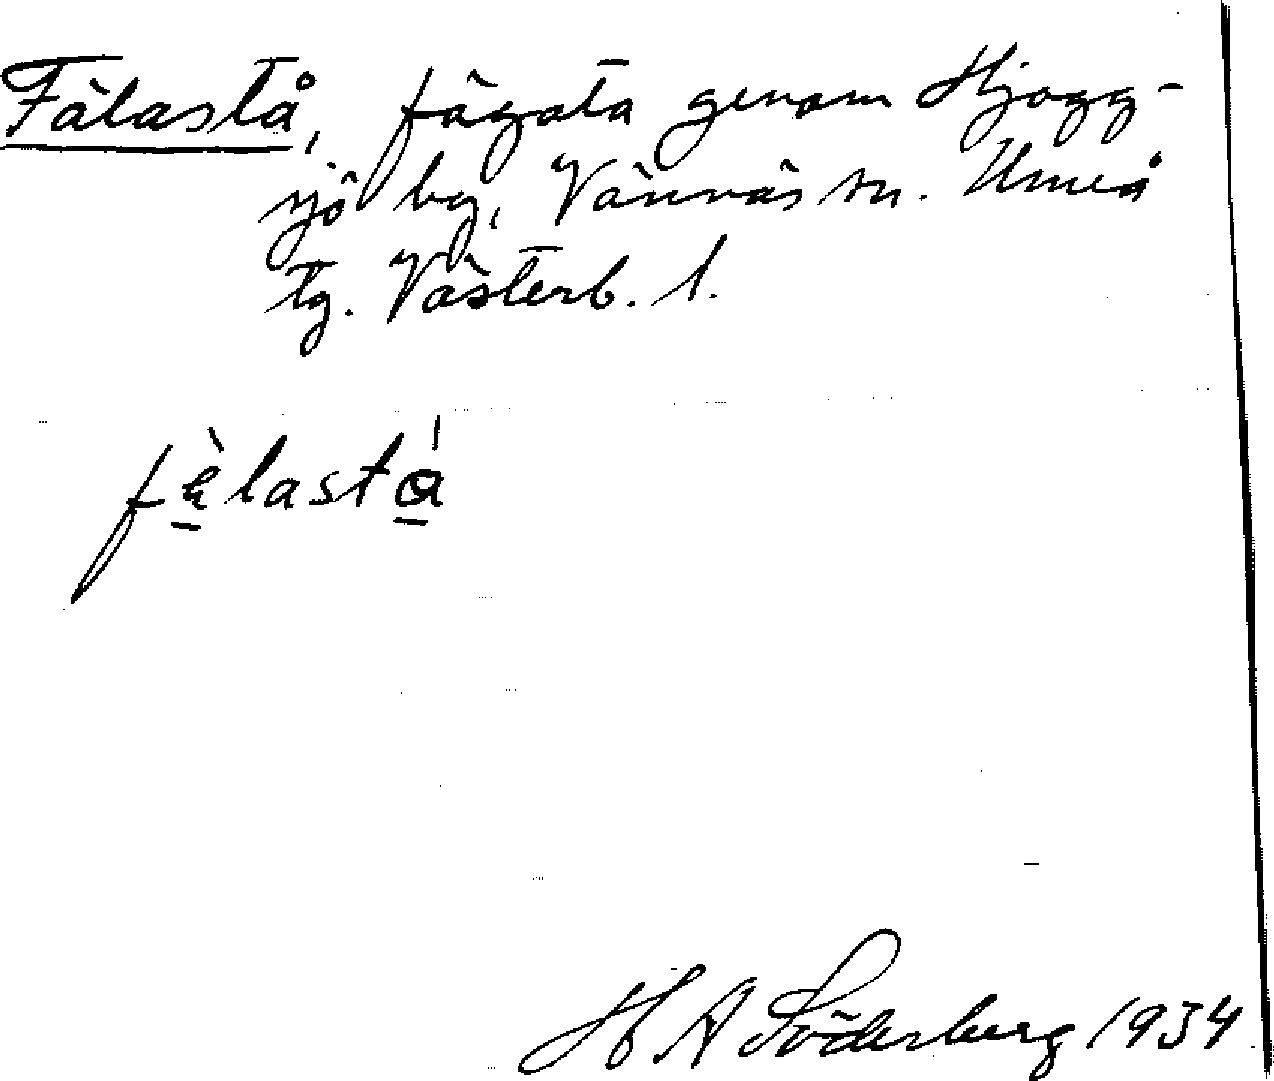 Fälastå, fägata genom Hjogg-
sjö by, Vännäs sn. Umeå
tg. Västerb. l.
fèlastá
H A Söderberg 1934